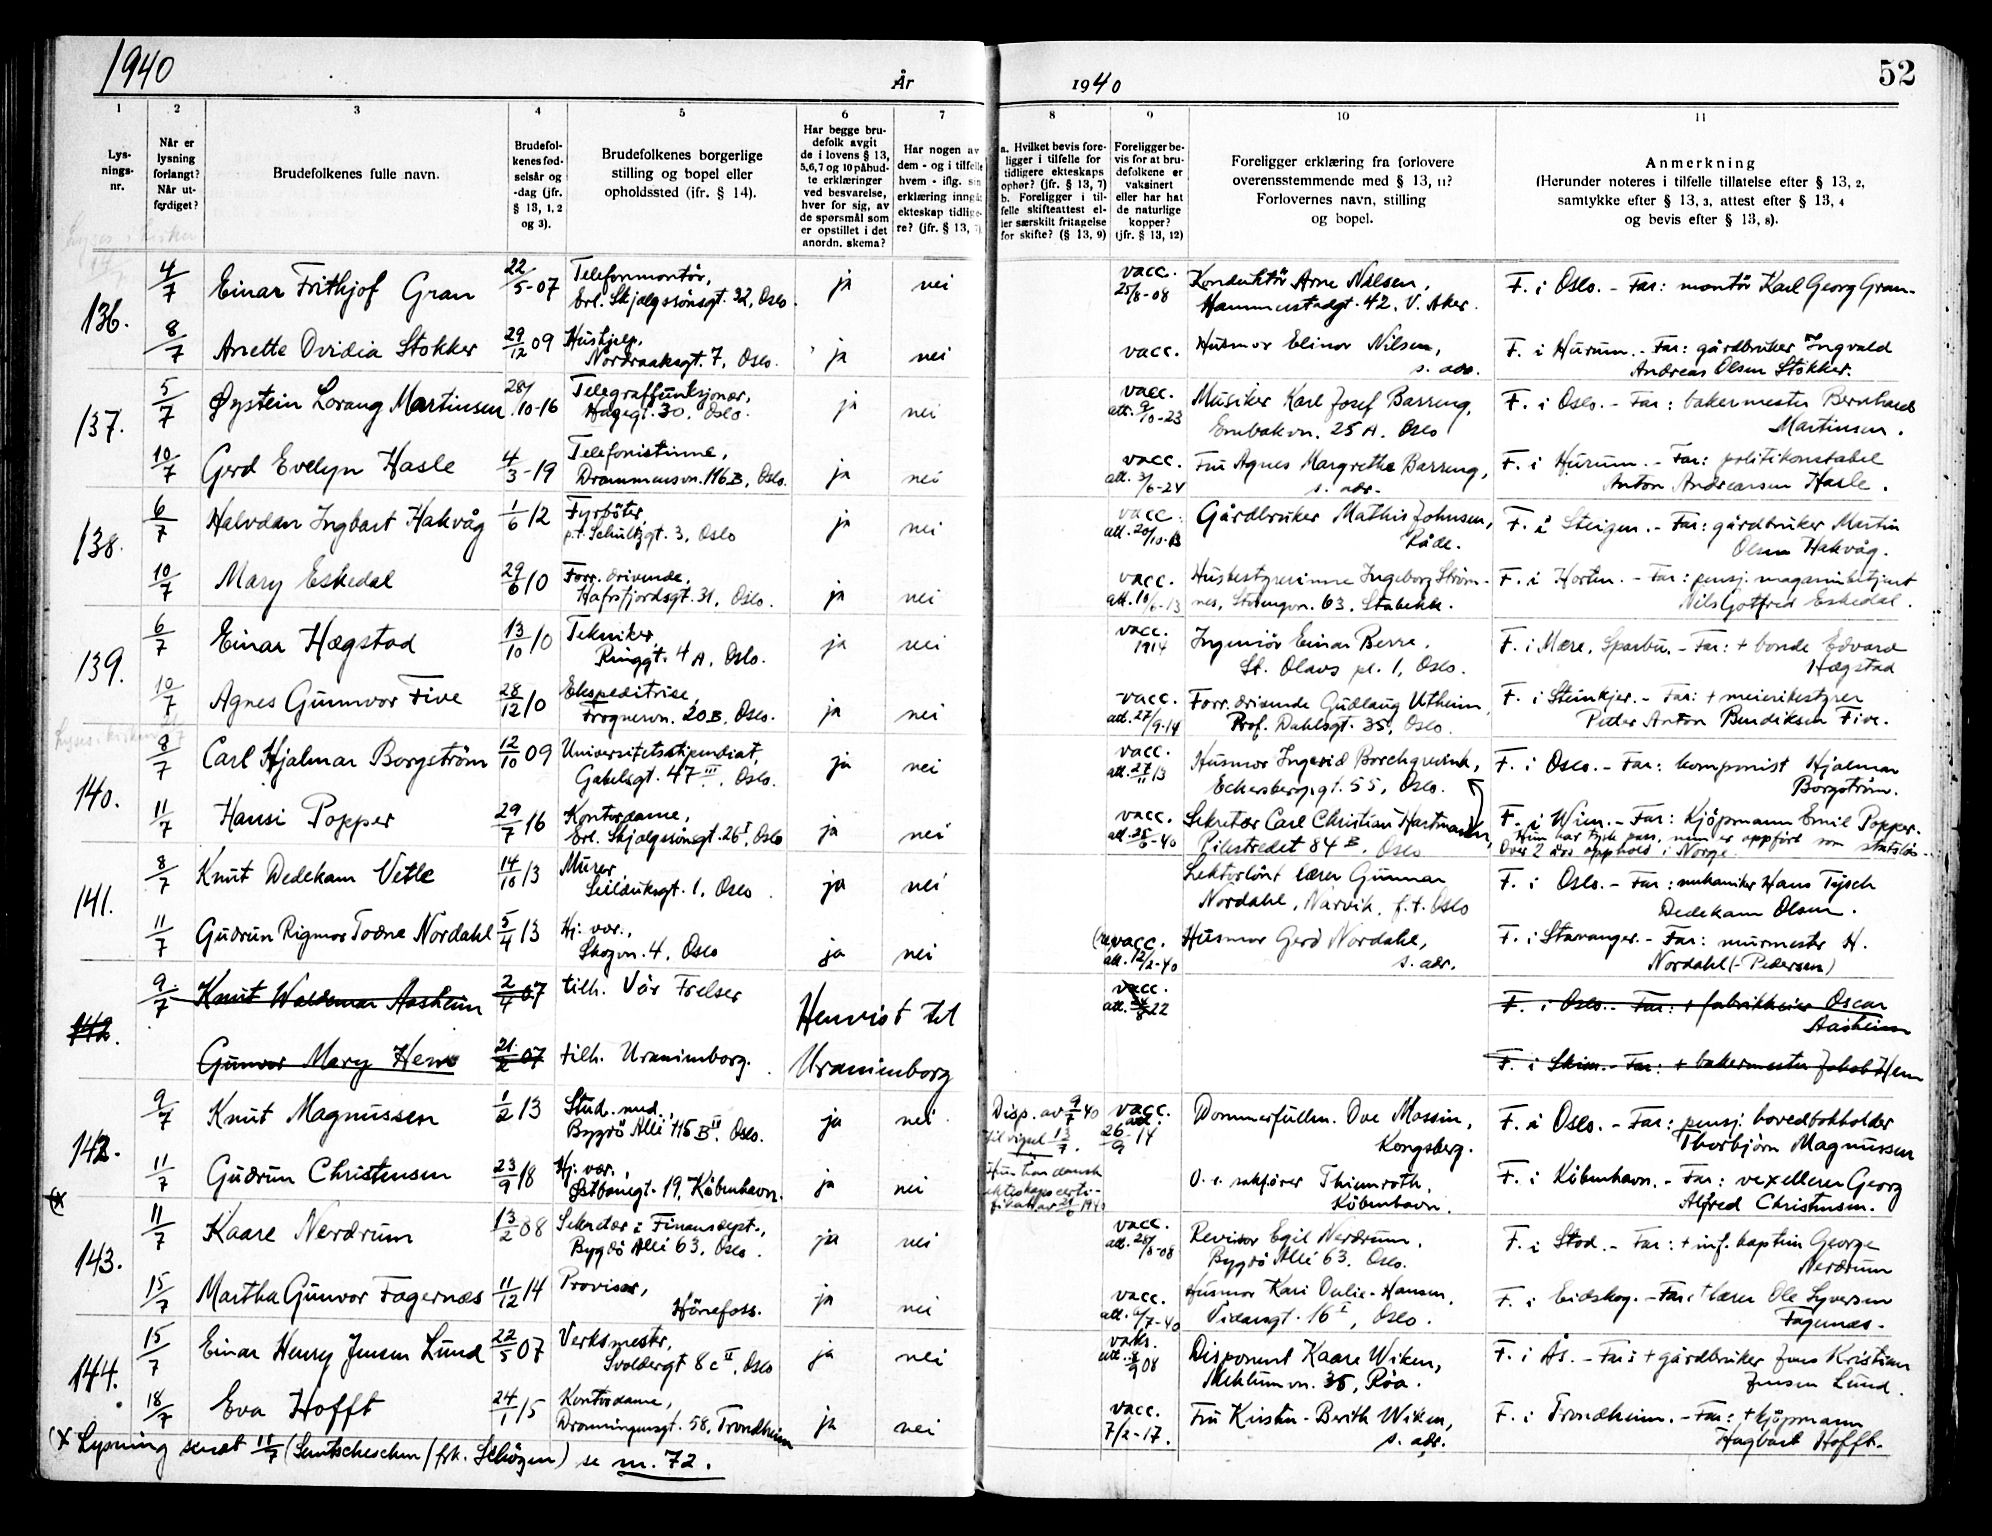 1940
År
1940
52
1 2 3 4 5 6 7 8 9 10 11
Lys-
nings-
nr.
Når er
lysning
forlangt?
Når ut-
ferdiget?
Brudefolkenes fulle navn.
Brudefol-
kenes fød-
selsår og
-dag (jfr.
§ 13, 1, 2
og 3).
Brudefolkenes borgerlige
stilling og bopel eller
opholdssted (ifr. § 14).
Har begge bru-
defolk avgit
de i lovens § 13,
5,6,7 og 10 påbud-
te erklæringer
ved besvarelse,
hver for sig, av
de spørsmål som
er opstillet i det
anordn. skema?
Har nogen av
dem - og i tilfelle
hvem - iflg. sin
erklæring inngå
ekteskap tidlige-
re? (jfr. § 13, 7)
a. Hvilket bevis fore-
ligger i tilfelle for
tidligere ekteskaps
ophør? (jfr. § 13, 7)
b. Foreligger i til-
felle skifteattest el-
ler særskilt fritagelse
for skifte? (§ 13, 9)
Foreligger be-
vis for at bru-
defolkene er
vaksinert
eller har hat
de naturlige
kopper?
(jfr. § 13, 12)
Foreligger erklæring fra forlovere
overensstemmende med § 13, 11?
Forlovernes navn, stilling
og bopel.
Anmerkning
(Herunder noteres i tilfelle tillatelse efter § 13, 2,
samtykke efter § 13, 3, attest efter § 13, 4
og bevis efter § 13, 8).
136.
4/7 Einar Frithjof Gran 22/5-07 Telefonmontør,
Erl. Skjalgssønsgt. 32, Oslo. ja nei vacc.
25/8-08 Konduktør Arne Nilsen,
Hammerstadgt. 42, V. Aker. F. i Oslo. - Far: montør Karl Georg Gran.
8/7 Anette Ovidia Stokker 29/12 09 Hushjelp,
Nordraaksgt. 7, Oslo. ja nei vacc. Husmor Elinor Nilsen,
s. adr. F. i Hurum. - Far: gårdbruker Ingvald
Andreas Olsen Stokker.
137.
5/7 Øystein Lorang Martinsen 28/10-16 Telegraffunksjonær,
Hagegt. 30, Oslo. ja nei vacc.
att. 9/10-23 Musiker Karl Josef Barreng,
Enebakvn. 25 A. Oslo F. i Oslo. - Far: bakermester Bernhard
Martinsen.
10/7 Gerd Evelyn Hasle 4/3-19 Telefonistinne,
Drammensvn. 116 B, Oslo. ja nei vacc.
att. 3/6-24 Fru Agnes Margrethe Barreng,
s. adr. F. i Hurum. - Far: politikonstabel
Anton Andreassen Hasle.
138.
6/7 Halvdan Ingbart Hakvåg 1/6 12 Fyrbøter,
p.t. Schultzgt. 3, Oslo ja nei vacc.
att. 20/10-13 Gårdbruker Mathis Johnsen,
Råde. F. i Steigen. - Far: gårdbruker Martin
Olsen Hakvåg.
10/7 Mary Eskedal 29/6 10 Forr. drivende,
Hafrsfjordsgt. 31, Oslo. ja nei vacc.
att. 10/6-13 Husbestyrerinne Ingeborg Strøm-
nes, 63, Stabekk. F. i Horten. - Far: pensj. magasinbetjent
Nils Gotfred Eskedal.
139.
6/7 Einar Hægstad 13/10 10 Tekniker,
Ringgt. 4 A, Oslo. ja nei vacc.
1914 Ingeniør Einar Berre,
St. Olavs pl. 1, Oslo. F. i Mære, Sparbu. - Far: + bonde Edvard
Hægstad
10/7 Agnes Gunnvor Five 28/12 10 Ekspeditrise,
Frognervn. 20 B, Oslo. ja nei vacc.
att. 27/9-14 Forr. drivende Gudlaug Utheim,
Prof. Dahlsgt. 35, Oslo. F. i Steinkjer. - Far: + meieribestyrer
Petter Anton Bendiksen Five.
140.
8/7 Carl Hjalmar Borgstrøm 12/10 09 Universitetsstipendiat,
Gabelsgt. 47 III, Oslo. ja nei vacc.
att. 27/11 13 Husmor Ingerid Borchgrevink,
Eckersbergsgt. 55, Oslo. F. i Oslo. - Far: komponist Hjalmar
Borgstrøm.
11/7 Hansi Popper 29/7 16 Kontordame,
Erl. Skjalgssønsgt. 26 I, Oslo ja nei vacc.
att. 25/6-40 Sekretær Carl Christian Hartmann,
Pilestredet 84 B, Oslo F. i Wien. - Far: Kjøpmann Emil Popper.
Hun har tysk pass, men er oppført som statsløs.
Over 2 års opphold i Norge.
141.
8/7 Knut Dedekam Vetle 14/10 13 Murer,
Seilduksgt. 1, Oslo ja nei Lektorlønt lærer Gunnar
Nordahl, Narvik, p.t. Oslo F. i Oslo. - Far: mekaniker Hans Tysch
Dedekam Olsen.
11/7 Gudrun Rigmor Todne Nordahl 5/4 13 Hj. vær.,
Skogvn. 4, Oslo ja nei (re)vacc.
att. 12/2-40 Husmor Gerd Nordahl,
s. adr. F. i Stavanger. - Far: murmester H.
Nordahl (- Pedersen)
142.
9/7 Knut Waldemar Aasheim 2/4 07 tilh. Vår Frelser Henvist til vacc.
att. 22 F. i Oslo. - Far: + fabrikkeier Oscar
Aasheim
Gunvor Mary Hem 21/2 07 tilh. Uranienborg. Uranienborg F. i Skien. - Far: + bakermester Jakob Hem
142.
9/7 Knut Magnussen 1/2 13 Stud. med.,
Bygdø Allé 115 B IV, Oslo. ja nei Disp. av 9/7 40
til vigsel 13/7. vacc.
att.
26/9-14 Dommerfullm. Ove Mossin,
Kongsberg. F. i Oslo. - Far: pensj. hovedbokholder
Thorbjørn Magnussen
11/7 Gudrun Christensen 23/9 18 Hj. vær.,
Østbanegt. 19, København. ja nei Hun har dansk
ekteskapscerti-
fikat av 21/6 1940 O. r. sakfører Thiemroth,
København. F. i København. - Far: vexellerer Georg
Alfred Christensen.
(x
143.
11/7 Kaare Nerdrum 13/2 08 Sekretær i Finansdept.,
Bygdø Allé 63, Oslo. ja nei vacc.
att. 28/8-08 Revisor Egil Nerdrum,
Bygdø Allé 63, Oslo. F. i Stod. - Far: + inf. kaptein George
Nerdrum
15/7 Martha Gunvor Fagernæs 11/12 14 Provisor,
Hønefoss. ja nei vacc.
att. 6/7-40 Husmor Kari Oulie-Hansen,
Vidarsgt. 16 I, Oslo. F. i Eidskog. - Far: + lærer Ole Syversen
Fagernæs.
144.
15/7 Einar Henry Jensen Lund 22/5 07 Verksmester,
Svoldergt 8 c II, Oslo ja nei vaks.
att. 08 Disponent Kaare Wiken,
Meklumvn. 35, Røa. F. i Ås. - Far: + gårdbruker Jens Kristian
Jensen Lund.
18/7 Eva Hofft 24/1 15 Kontordame,
Dronningensgt. 58, Trondheim ja nei vacc.
7/2-17. Fru Kirsten-Berith Wiken,
s. adr. F. i Trondheim. - Far: + kjøpmann
Hagbart Hofft.
(x Lysning senat 11/7 (Sentscheschen / frk. Schözen) se nr. 72.